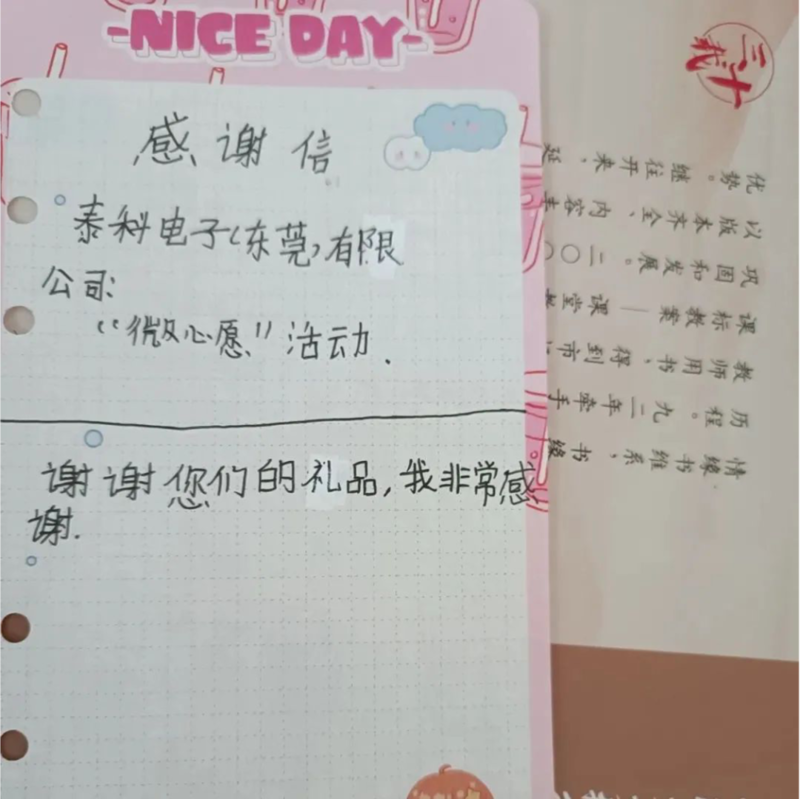 -NICE DAY-
感谢信
泰科电子(东莞)有限
公司:
“微心愿”活动.
谢谢您们的礼品,我非常感
谢.
情缘书维系、书缘
历程。九二年牵手
教师用书、得到市
课标教案—课堂
巩固和发展。二〇〇
以版本齐全、内容丰
优势。继往开来、延